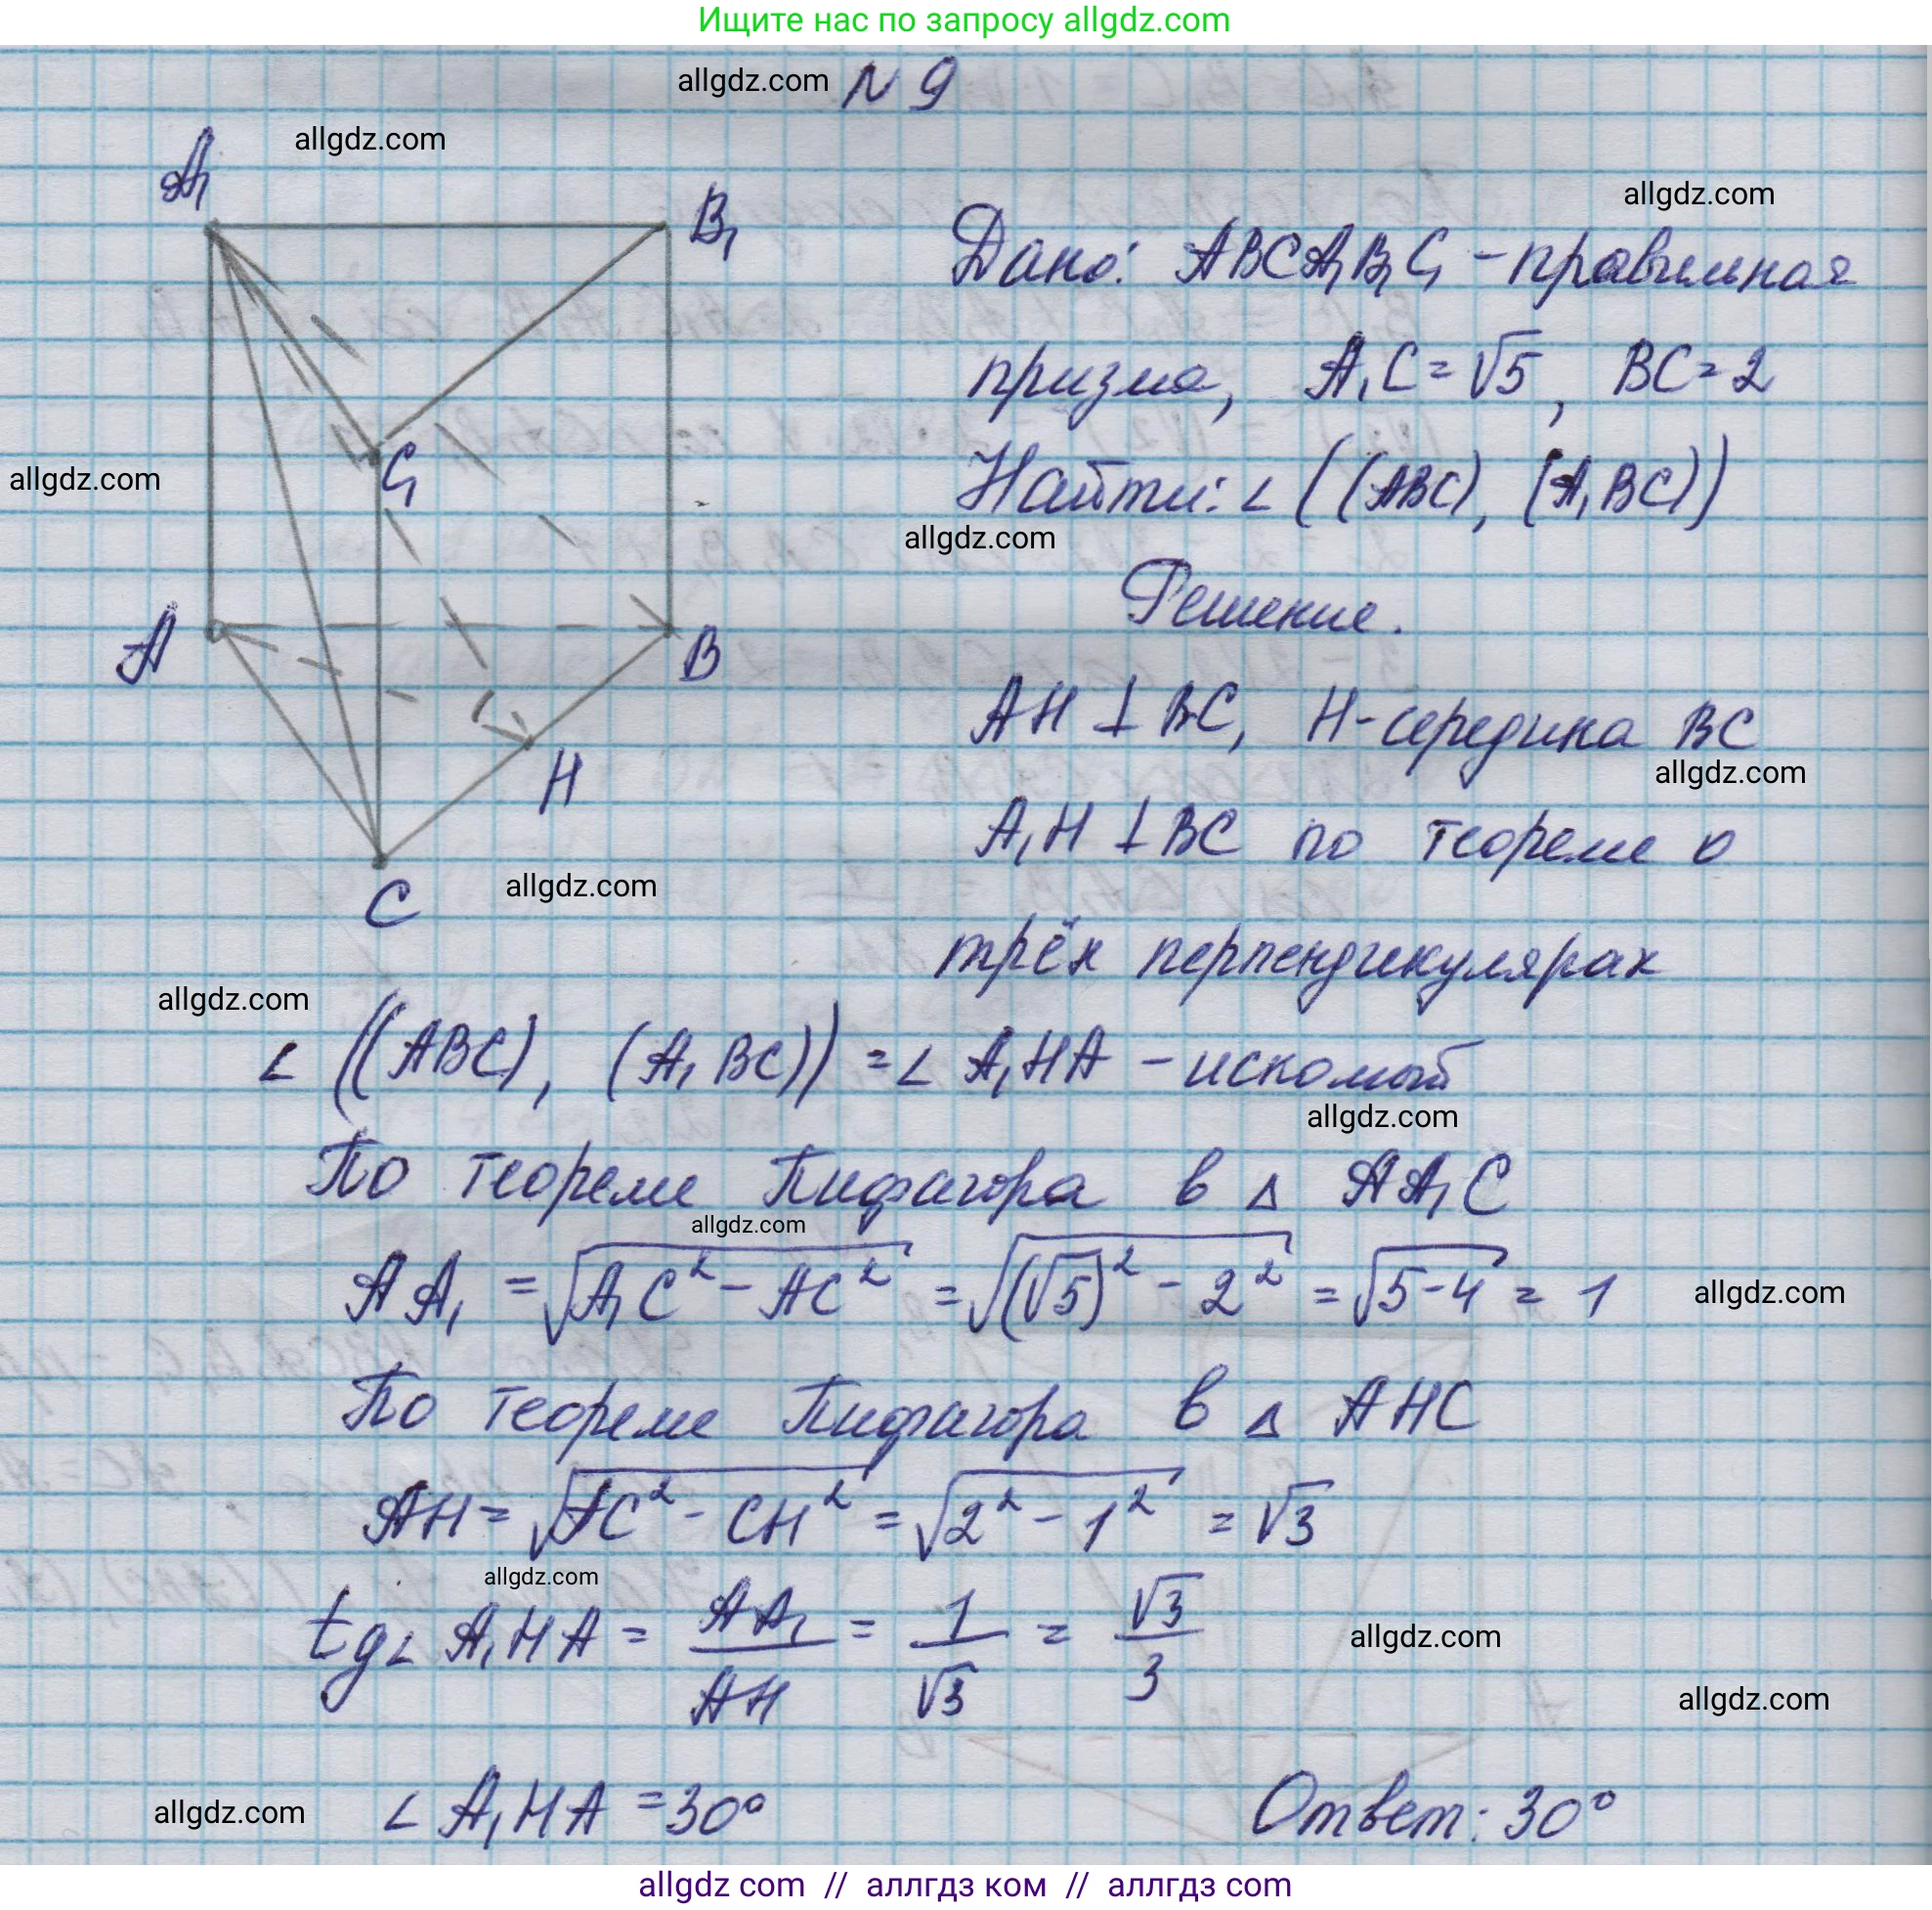 Ищите нас по запросу allgdz.com
allgdz.com № 9
allgdz.com
A₁
B₁
C₁
A
B
H
C
allgdz.com
Дано: ABCA₁B₁C₁ - правильная
призма, A₁C = √5, BC = 2
allgdz.com
Найти: ∠ ((ABC), (A₁BC))
allgdz.com
Решение.
AH ⊥ BC, H - середина BC
allgdz.com
A₁H ⊥ BC по теореме о
allgdz.com
трёх перпендикулярах
allgdz.com
∠ ((ABC), (A₁BC)) = ∠ A₁HA - искомый
allgdz.com
По теореме Пифагора в △ AA₁C
allgdz.com
AA₁ = √(A₁C² - AC²) = √((√5)² - 2²) = √(5-4) = 1 allgdz.com
По теореме Пифагора в △ AHC
AH = √(AC² - CH²) = √(2² - 1²) = √3
allgdz.com
tg∠ A₁HA = AA₁/AH = 1/√3 = √3/3 allgdz.com
allgdz.com
allgdz.com ∠ A₁HA = 30° Ответ: 30°
allgdz com // аллгдз ком // аллгдз com